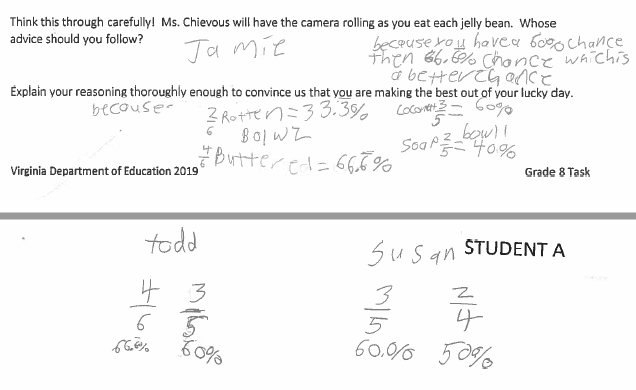 Think this through carefully! Ms. Chievous will have the camera rolling as you eat each jelly bean. Whose
advice should you follow?
Jamie
because you have a 60% chance
then 66.6% chance which is
a better chance
Explain your reasoning thoroughly enough to convince us that you are making the best out of your lucky day.
because
2/6 Rotten = 33.3%
Bowl 2
4/6 Buttered = 66.6%
Coconut 3/5 = 60%
bowl 1
Soap 2/5 = 40%
Virginia Department of Education 2019
Grade 8 Task
todd
Susan
STUDENT A
4/6 3/5
66.6% 60%
3/5 2/4
60.0% 50%